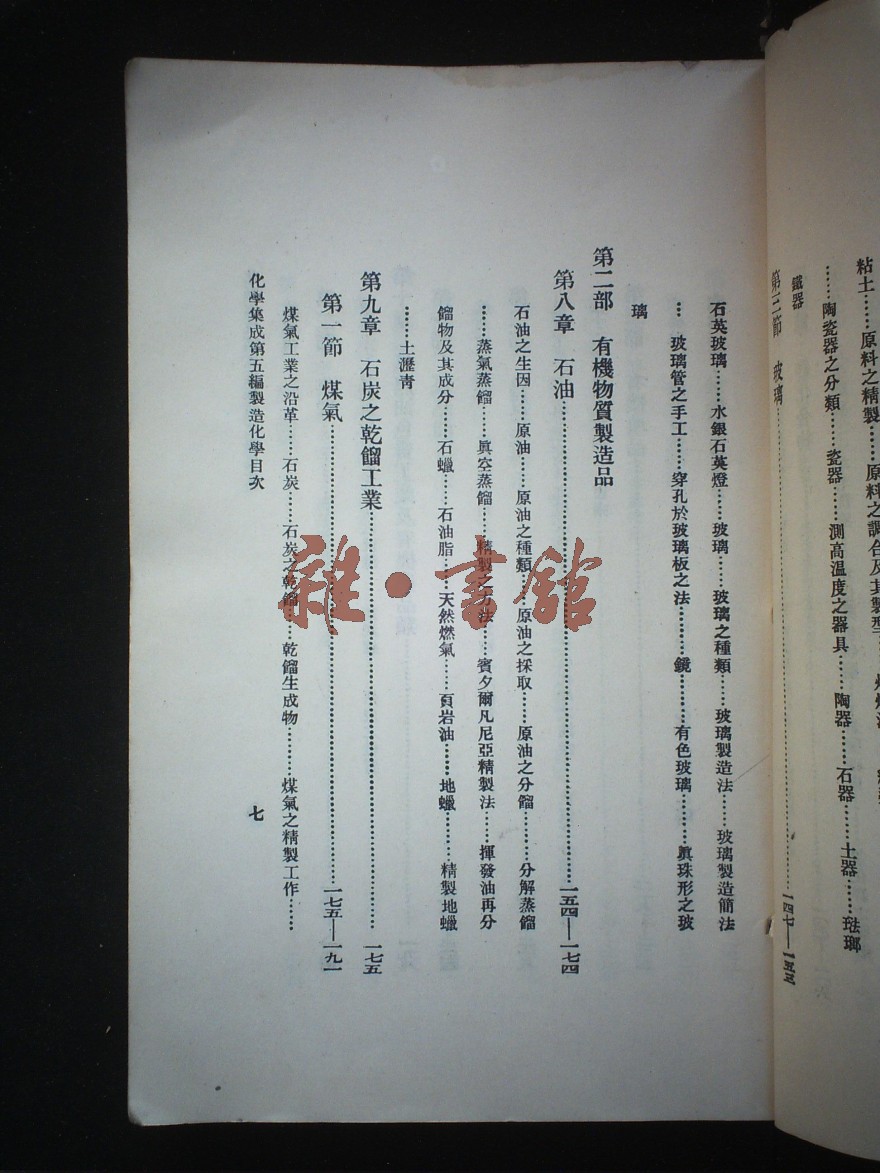 粘土……原料之精製……原料之調合及其製型……
……陶瓷器之分類……瓷器……測高溫度之器具……陶器……石器……土器……琺瑯
鐵器
第三節 玻璃……一四七—一五三
石英玻璃……水銀石英燈……玻璃……玻璃之種類……玻璃製造法……玻璃製造簡法
…玻璃管之手工……穿孔於玻璃板之法……鏡……有色玻璃……眞珠形之玻
璃
第二部 有機物質製造品
第八章 石油……一五四—一七四
石油之生因……原油……原油之種類……原油之採取……原油之分餾……分解蒸餾
……蒸氣蒸餾……眞空蒸餾……精製之方法……賓夕爾凡尼亞精製法……揮發油再分
餾物及其成分……石蠟……石油脂……天然燃氣……頁岩油……地蠟……精製地蠟
……土瀝青
第九章 石炭之乾餾工業……一七五
第一節 煤氣……一七五—一九一
煤氣工業之沿革……石炭……石炭之乾餾……乾餾生成物……煤氣之精製工作……
化學集成第五編製造化學目次
七
雜·書館